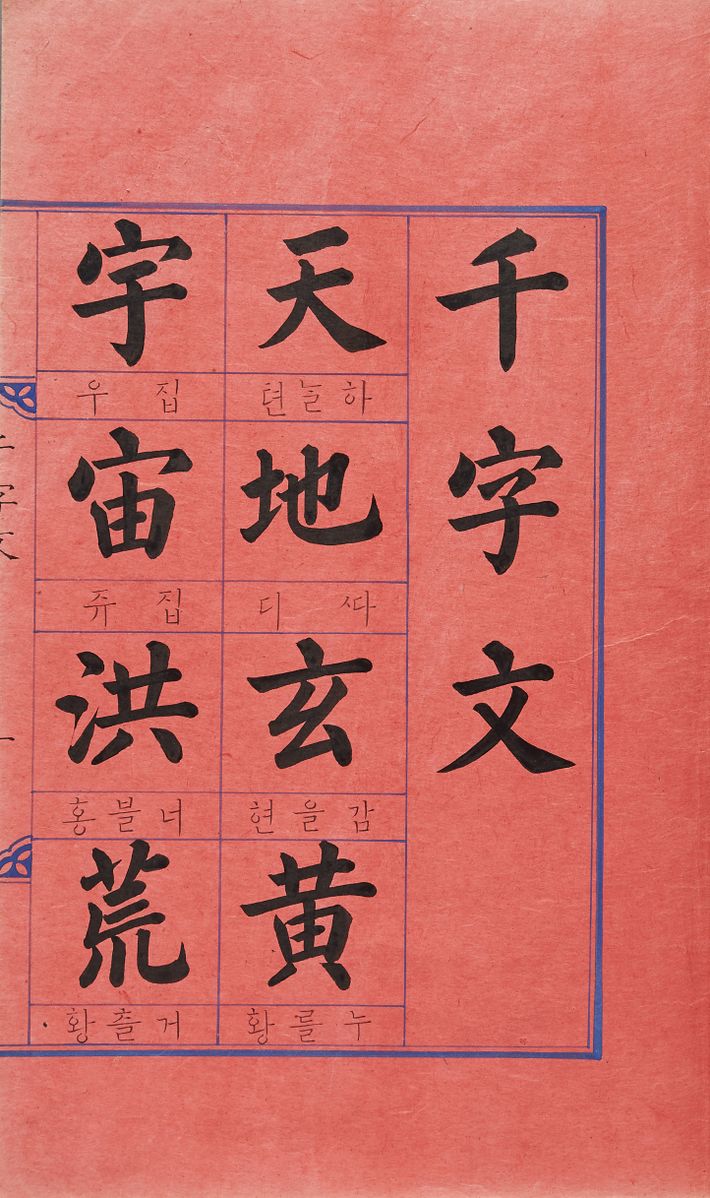 千字文
天
하늘 텬
地
ᄯᅡ 디
玄
감을 현
黃
누를 황
宇
집 우
宙
집 쥬
洪
너블 홍
荒
거츨 황